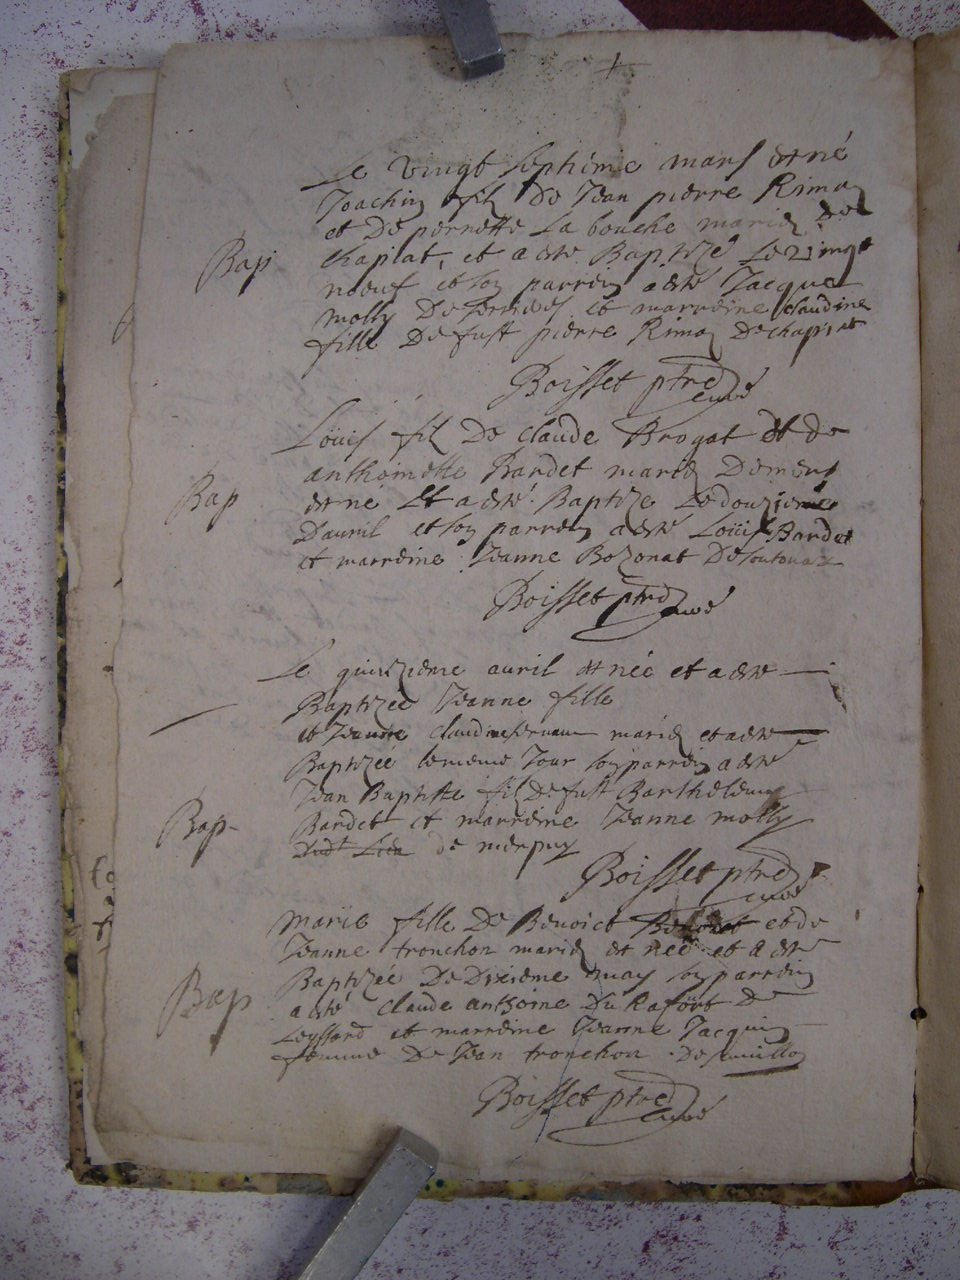 Le vingt septiéme mars est né
Joachin filz De Jean pierre Rimoz
et De pernette La bouche mariez de
Bap chaplat, et a esté Baptizé Le vingt
noeuf et son parrein a esté Jacque
molly De et marreine Claudine
fille De fust pierre Rimoz De chaplat
Boisset ptre curé
Loüis filz De Claude Brogat et de
anthoinette Bardet mariez De
Bap est né Et a esté Baptize Le douzieme
D'auril et son parrein a esté Loüis Bardet
et marreine Jeanne Bozonat De
Boisset ptre curé
Le quinzieme auril est née et a esté
Baptizée Jeanne fille
et Claudine mariez et a esté
Baptizee le meme Jour son parrein a esté
Jean Baptiste filz De fust Barthelemy
Bap Bardet et marreine Jeanne molly
dud^t Lieu de merpuy
Boisset ptre curé
Marie fille De Benoict et de
Jeanne tronchon mariez est née et a esté
Baptizée De Dixieme may son parrein
Bap a esté Claude anthoine Du Rafört de
Leyssard et marreine Jeanne Jacquin
femme De Jean tronchon De
Boisset ptre curé